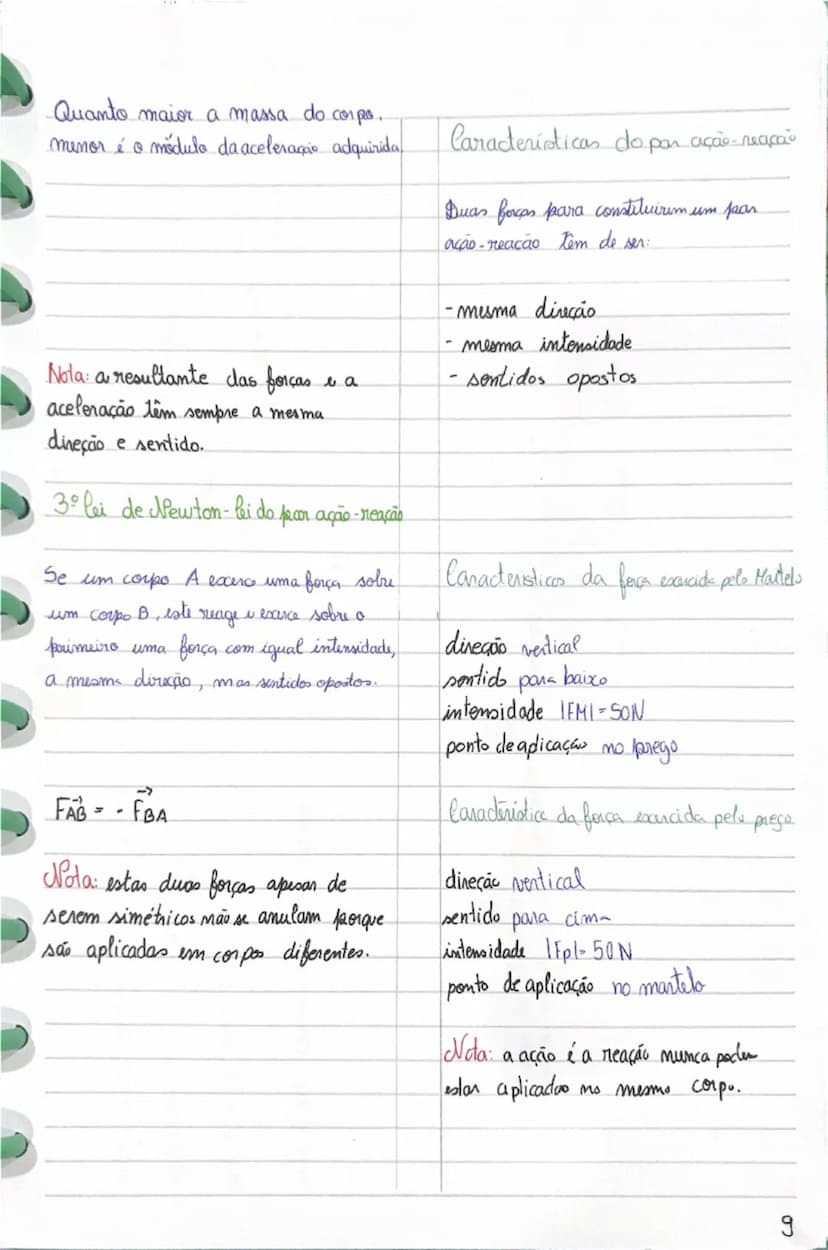 Quanto maior a massa do corpo.
menor é o módulo da aceleração adquirida
Nota: a resultante das forças e a
aceleração têm sempre a mesma
direção e sentido.
3º lei de Newton - lei do par ação-reação
Se um corpo A exerce uma força sobre
um corpo B, este reage e exerce sobre o
primeiro uma força com igual intensidade,
a mesma direção, mas sentidos opostos.
FAB = - FBA
Nota: estas duas forças apesar de
serem simétricos não se anulam porque
são aplicadas em corpos diferentes.
Características do par ação-reação
Duas forças para constituirem um par
ação-reacão têm de ser:
- mesma direção
- mesma intensidade
- sentidos opostos
Caracteristicas da força exercida pelo Martelo
direção vertical
sentido para baixo
intensidade |FM| = 50N
ponto de aplicação no prego
Característica da força exercida pelo prego
direção vertical
sentido para cima
intensidade |Fp| = 50N
ponto de aplicação no martelo
Nota: a ação é a reação nunca podem
estar aplicadas no mesmo corpo.
9